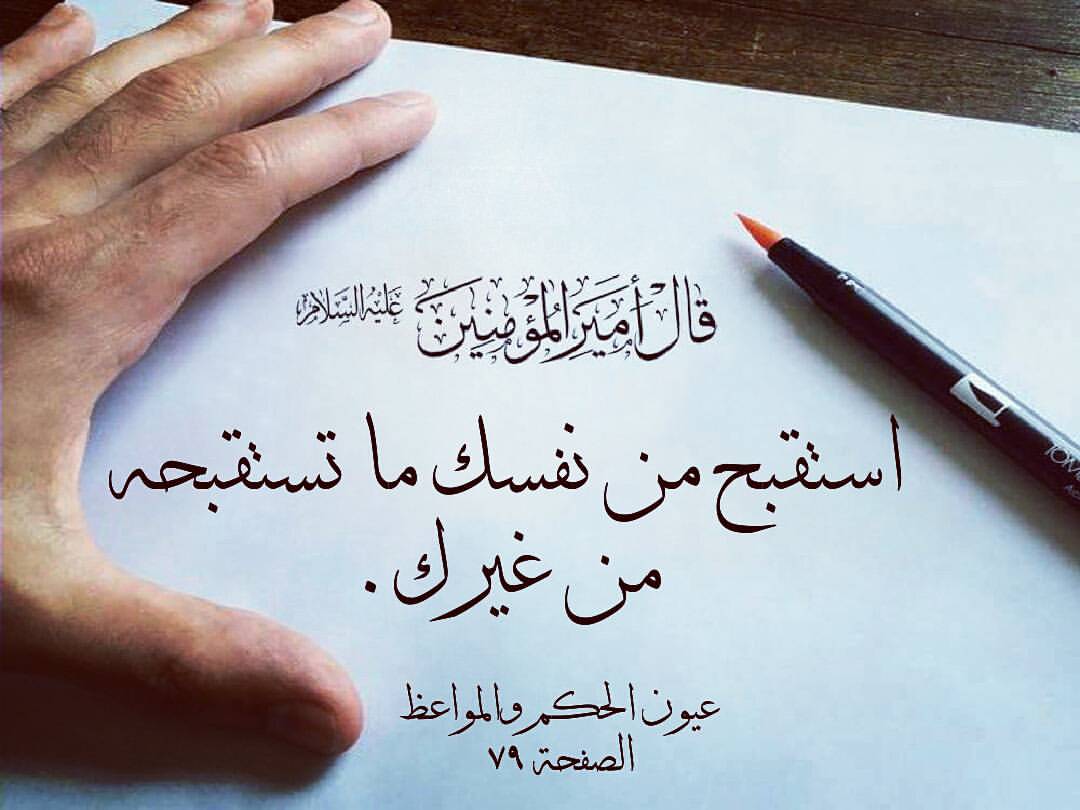 قَالَ أَمَيَرِ الْمُؤْمِنِين عَلَيْهِ السَّلَام
استقبح من نفسك ما تستقبحه
من غيرك .
عيون الحكم والمواعظ
الصفحة ٧٩